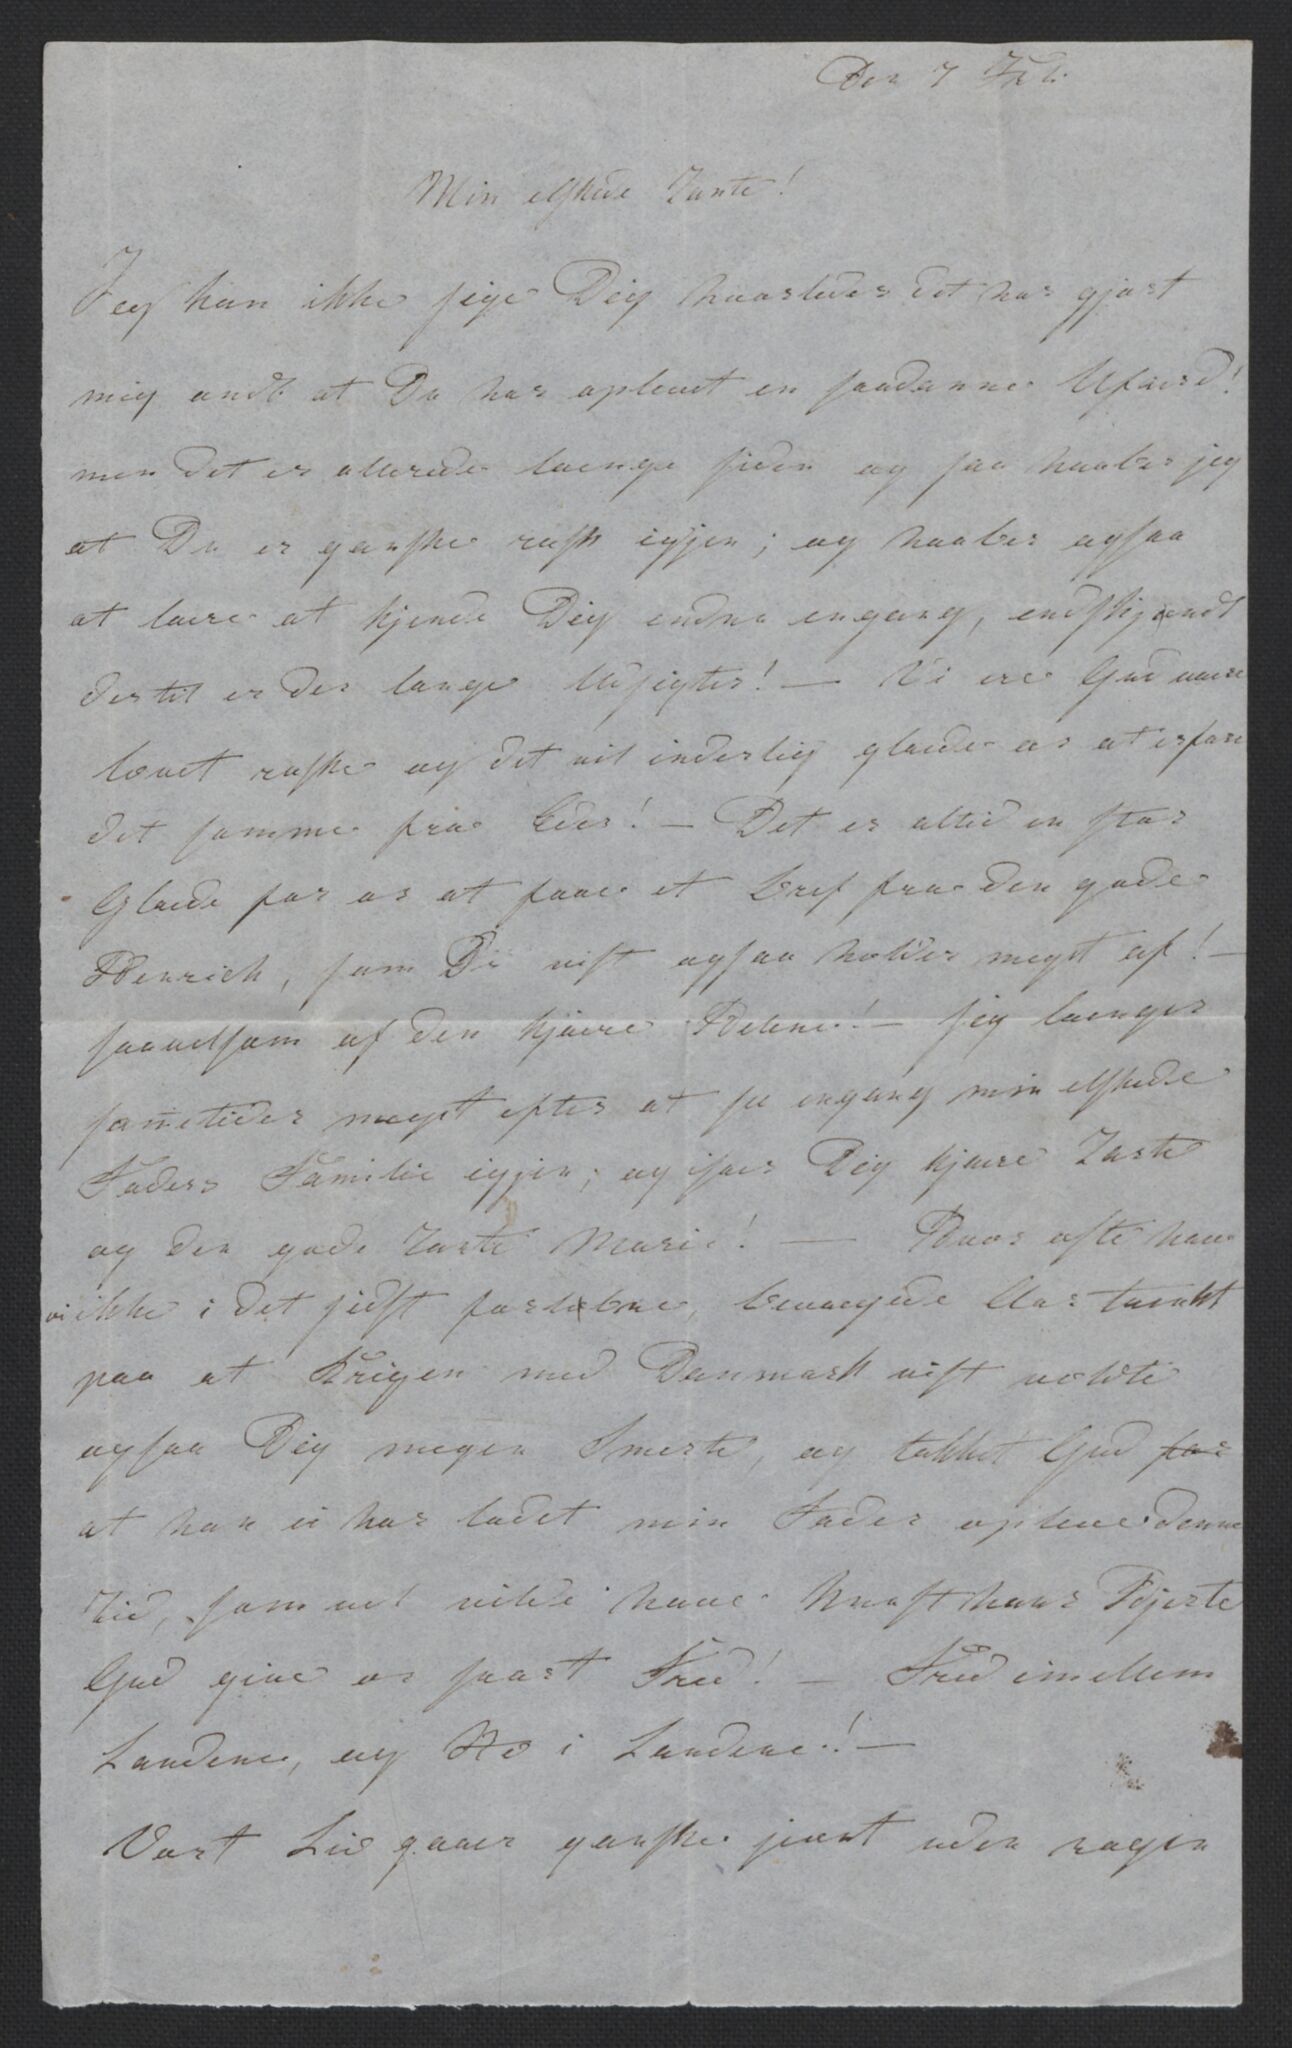 Den 7 Feb.
Min elskede Tante!
Jeg kan ikke sige Dig hvorledes det har gjort
mig ondt at Du har oplevet en saadanne Ufærd!
men det er allerede længe siden og saa haaber jeg
at Du er ganske rask igjen; og haaber ogsaa
at lære at kjende Dig endnu engang, endskjøndt
dertil er der lange Udsigter! — Vi ere Gud være
lovet raske og det vil inderlig glæde os at erfare
det samme fra Eder! — Det er altid en stor
Glæde for os at faae et Bref fra den gode
Henrich, som De vist ogsaa holder meget af! —
saavelsom af den kjære Helene! — Jeg længes
sommetider meget efter at see engang min elskede
Faders Familie igjen; og især Dig kjære Tante
og den gode Tante Marie! — Hvor ofte have
vi ikke i det sidst forløbne, bevægede Aar tænkt
paa at Krigen med Danmark vist voldte
ogsaa Dig megen Smerte, og takket Gud for
at han ei har ladet min Fader opleve denne
Tid, som vel vilde have knust hans Hjerte
Gud give os snart Fred! — Fred imellem
Landene, og Ro i Landene! —
Vort Liv gaaer ganske jevnt uden nogen